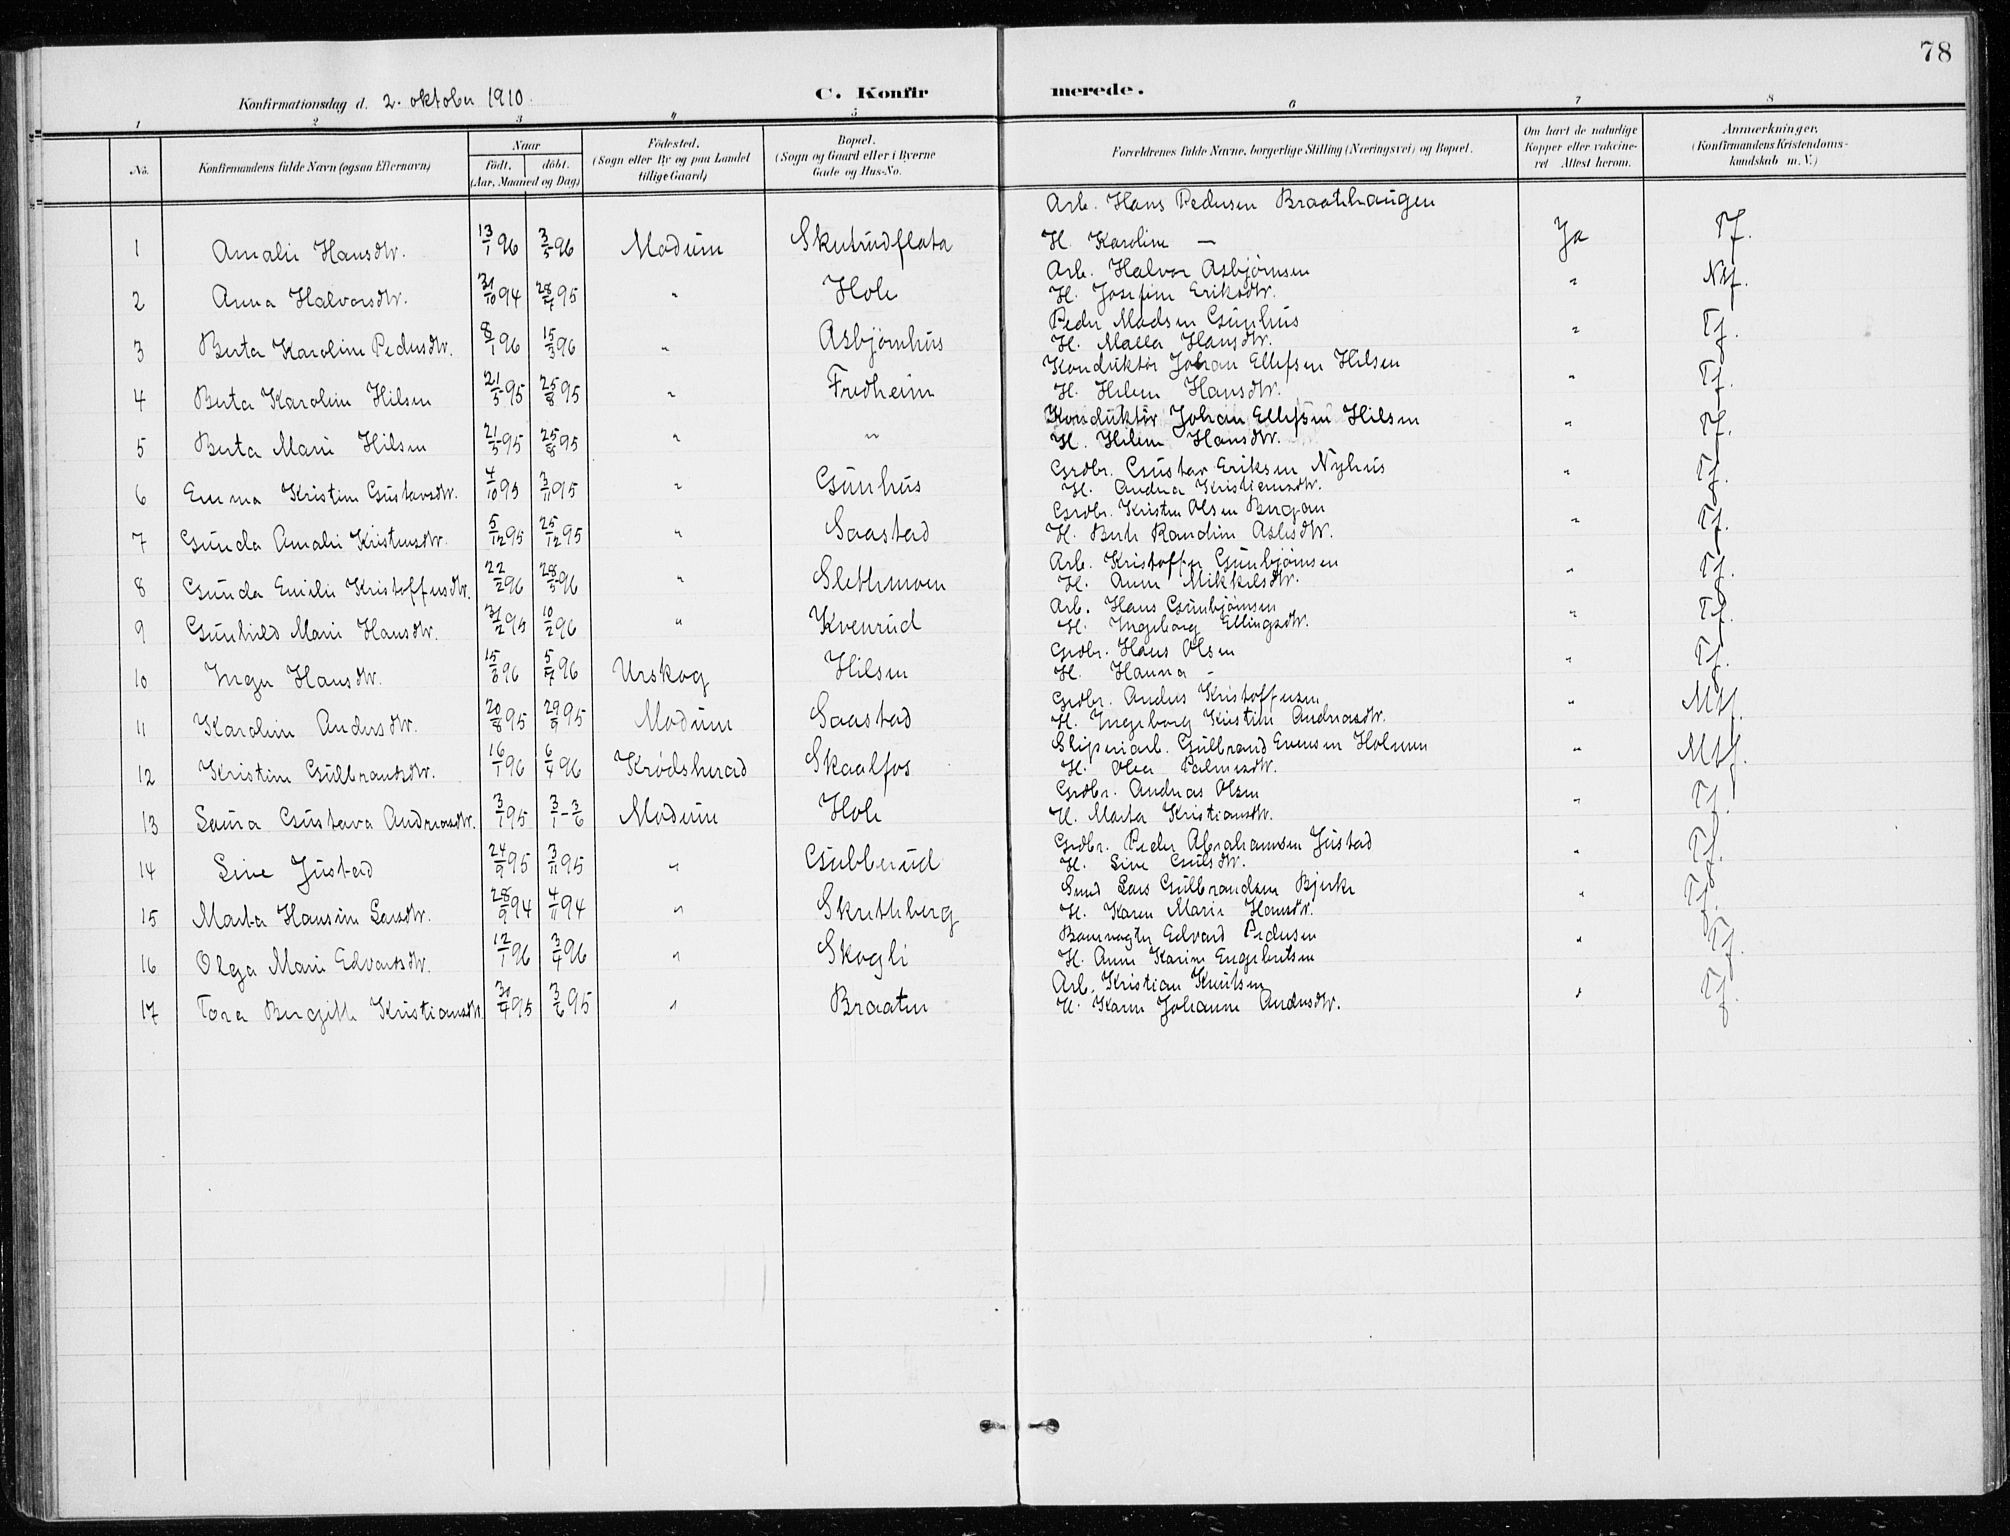 78
Konfirmationsdag d. 2. oktober 1910. C. Konfirmerede.
1 2 3 4 5 6 7 8
No. Konfirmandens fulde Navn (ogsaa Efternavn) Naar födt. döbt. (Aar, Maaned og Dag) Födested. (Sogn eller By og paa Landet tillige Gaard) Bopæl. (Sogn og Gaard eller i Byerne Gade og Hus-No. Forældrenes fulde Navne, borgerlige Stilling (Næringsvei) og Bopæl. Om havt de naturlige Kopper eller vakcineret Attest herom. Anmærkninger, (Konfirmandens Kristendomskundskab m. V.)
Arb. Hans Pedersen Braatehaugen
1 Amalie Hansdtr. 13/1 96 3/5 96 Modum Skutrudflata H. Karoline — Ja Tf.
Arb. Halvor Asbjørnsen
2 Anna Halvorsdtr. 31/10 94 28/4 95 " Hole H. Josefine Eriksdtr. " Ntf.
Peder Madsen Gunhus
3 Berta Karoline Pedersdtr. 8/1 96 15/3 96 " Asbjørnhus H. Malla Hansdtr. " Tf.
Konduktør Johan Ellefsen Hilsen
4 Berta Karoline Hilsen 21/5 95 25/8 95 " Fredheim H. Helene Hansdtr. " Tf.
Konduktør Johan Ellefsen Hilsen
5 Berta Marie Hilsen 21/5 95 25/8 95 " " H. Helene Hansdtr. " Tf.
Grdbr. Gustav Eriksen Nyhus
6 Emma Kristine Gustavsdtr. 4/10 95 3/11 95 " Gunhus H. Andrea Kristiansdtr. " Tf.
Grdbr. Kristen Olsen Bergan
7 Gunda Amalie Kristensdtr. 5/12 95 25/12 95 " Saastad H. Berte Randine Aslesdtr. " Tf.
Arb. Kristoffer Gunbjørnsen
8 Gunda Emilie Kristoffersdtr. 22/2 96 28/5 96 " Slettemoen H. Anne Mikkelsdtr. " Tf.
Arb. Hans Gunbjørnsen
9 Gunhild Marie Hansdtr. 31/12 95 10/2 96 " Kvenrud H. Ingeborg Ellingsdtr. " Tf.
Grdbr. Hans Olsen
10 Inger Hansdtr. 15/3 96 5/7 96 Urskog Hilsen H. Hanna - " Tf.
Grdbr. Anders Kristoffersen
11 Karoline Andersdtr. 20/8 95 29/9 95 Modum Saastad H. Ingeborg Kristine Andreasdtr. " Mtf.
Sliperiarb. Gulbrand Evensen Holmen
12 Kristine Gulbrandsdtr. 16/1 96 6/4 96 Krødsherad Skaalfos H. Olea Palmesdtr. " Mtf.
Grdbr. Andreas Olsen
13 Laura Gustava Andreasdtr. 3/1 95 3/1 - 3/6 Modum Hole H. Marta Kristiansdtr. " Tf.
Grdbr. Peder Abrahamsen Justad
14 Sine Justad 24/9 95 3/11 95 " Gubberud H. Sine Gulsdtr. " Tf.
Smed Lars Gulbrandsen Bjerke
15 Marta Hansine Larsdtr. 28/9 94 4/11 94 " Skretteberg H. Karen Marie Hansdtr. " Tf.
Banevogter Edvard Pedersen
16 Olga Marie Edvardsdtr. 12/1 96 3/4 96 " Skogli H. Anne Karine Engebretsen " Tf.
Arb. Kristian Knutsen
17 Tora Bergitte Kristiansdtr. 30/4 95 3/6 95 " Braaten H. Karen Johanne Andersdtr. " Tf.